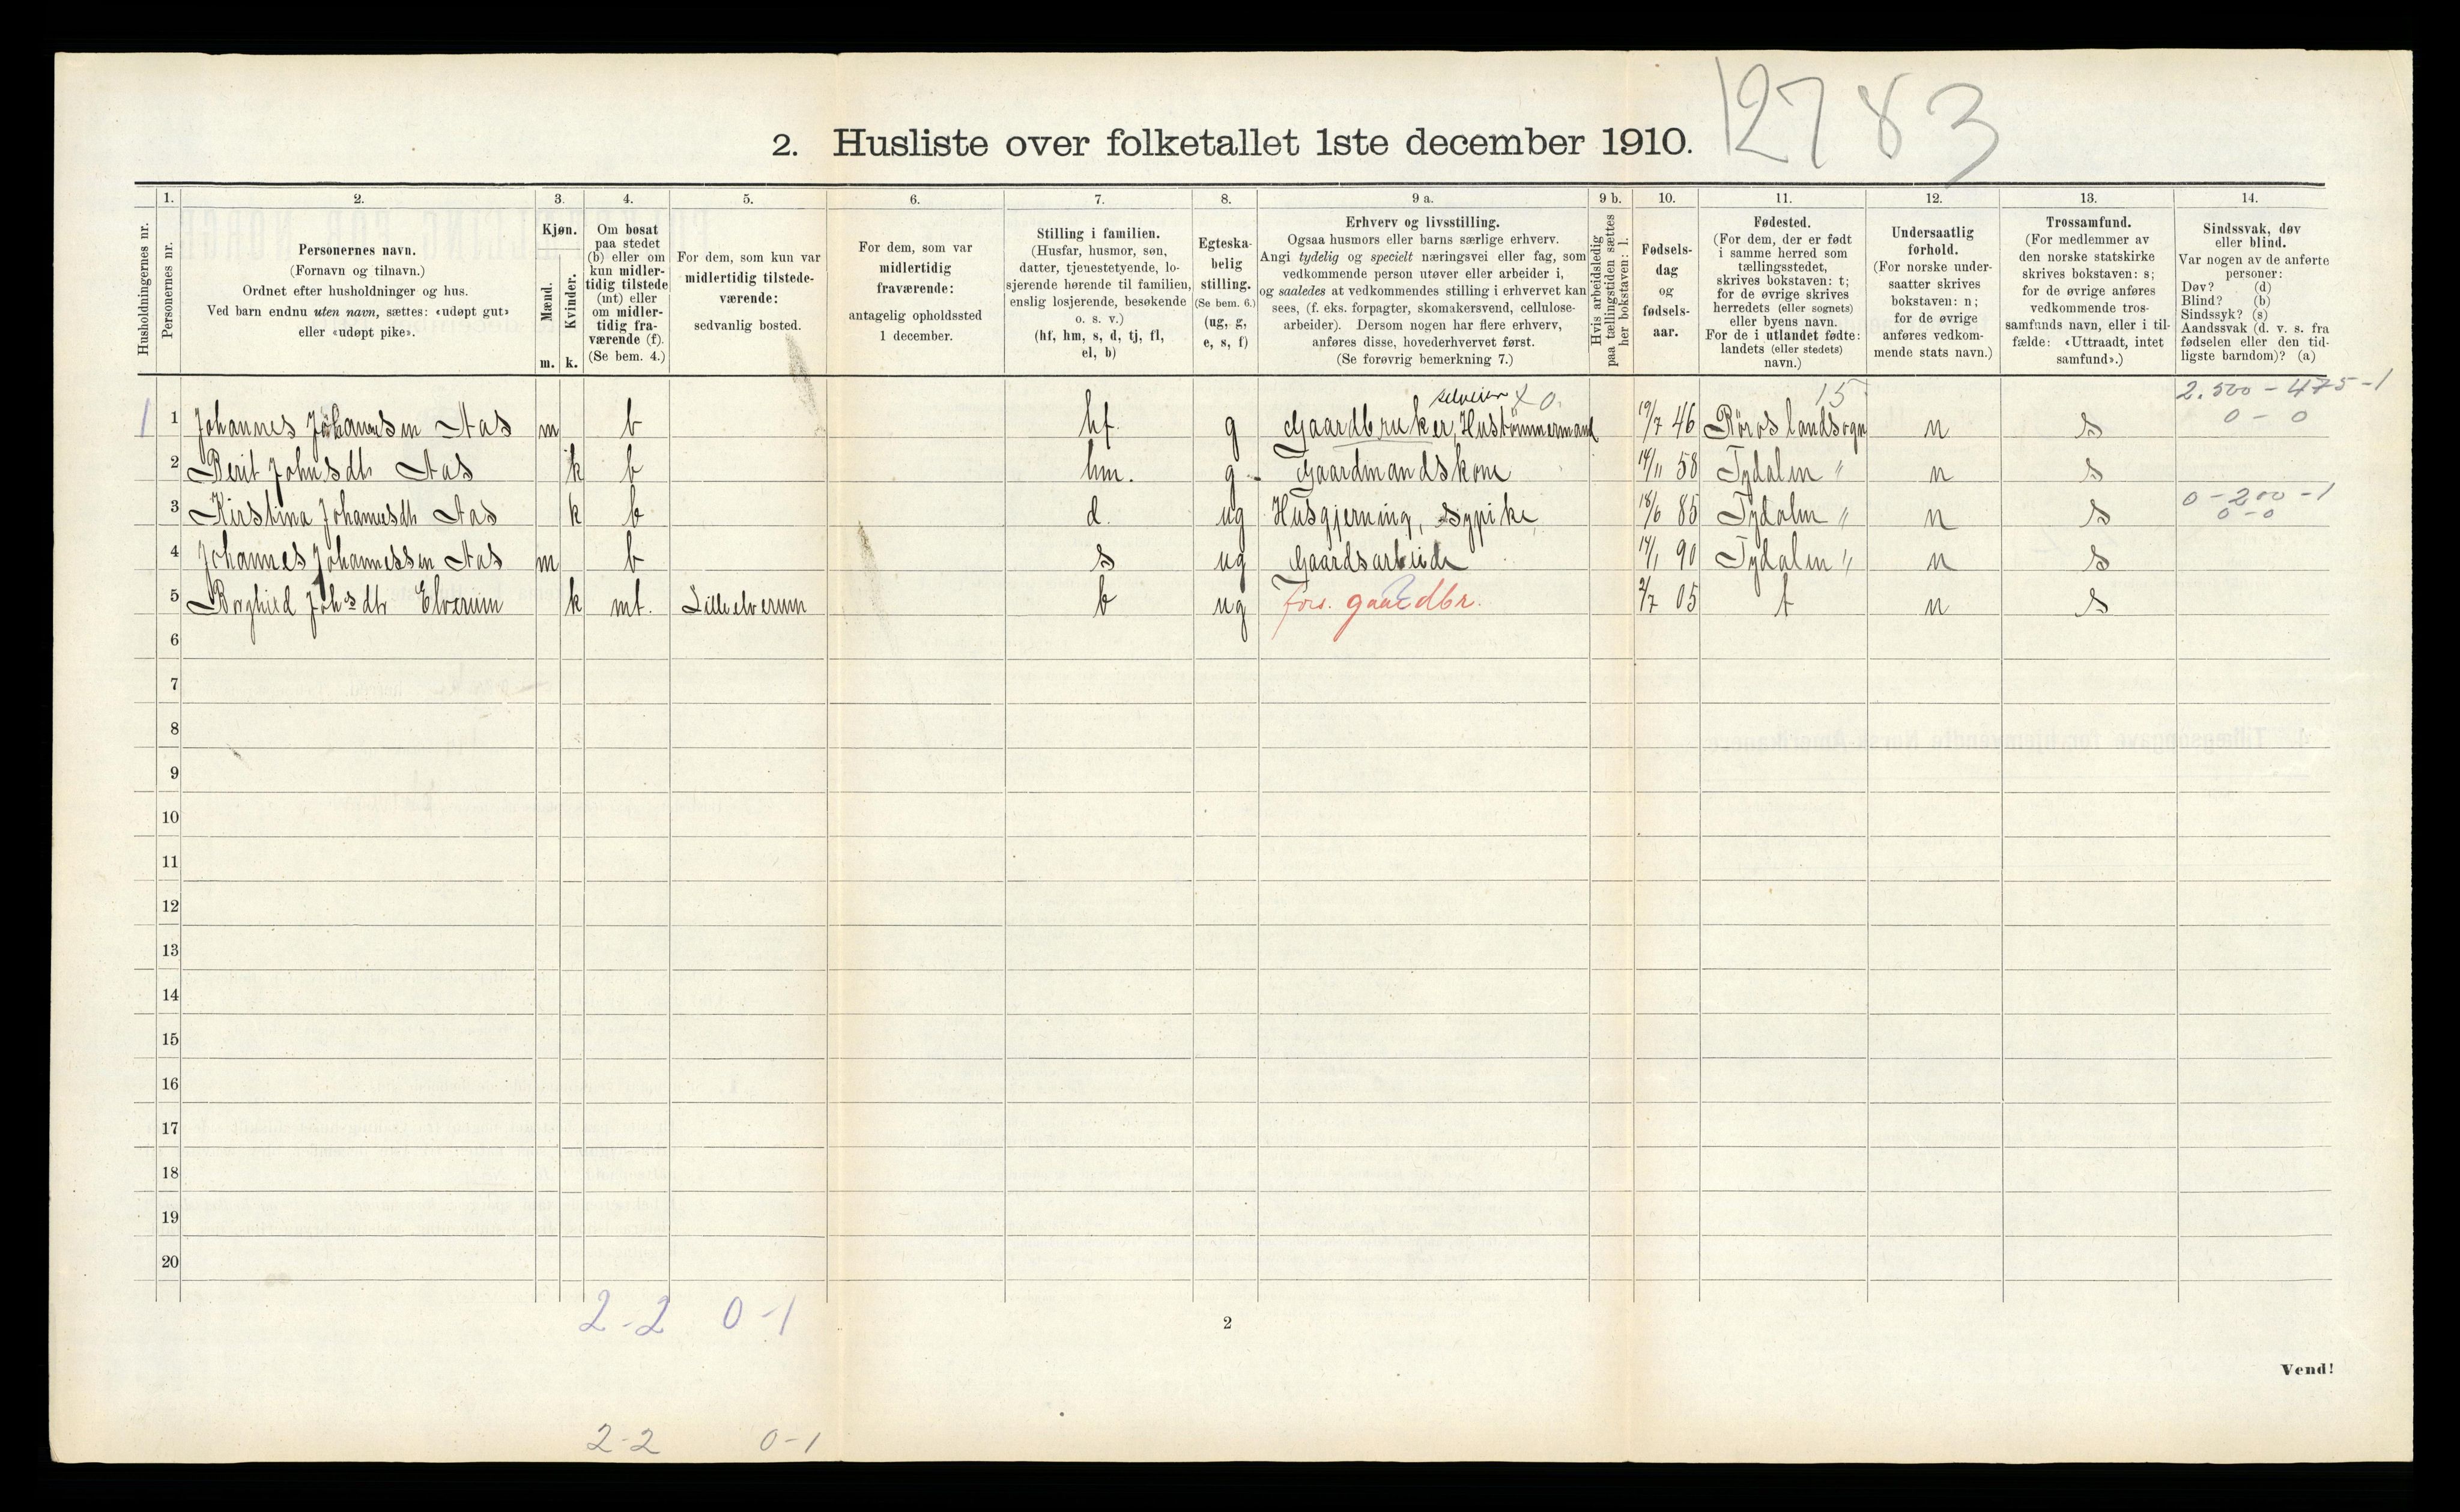 12783
2. Husliste over folketallet 1ste december 1910.
Husholdningernes nr.
1. Personernes nr.
2. Personernes navn. (Fornavn og tilnavn.) Ordnet efter husholdninger og hus. Ved barn endnu uten navn, sættes: «udøpt gut» eller «udøpt pike».
3. Kjøn. Mænd. m. Kvinder. k.
4. Om bosat paa stedet (b) eller om kun midlertidig tilstede (mt) eller om midlertidig fraværende (f). (Se bem. 4.)
5. For dem, som kun var midlertidig tilstedeværende: sedvanlig bosted.
6. For dem, som var midlertidig fraværende: antagelig opholdssted 1 december.
7. Stilling i familien. (Husfar, husmor, søn, datter, tjenestetyende, losjerende hørende til familien, enslig losjerende, besøkende o. s. v.) (hf, hm, s, d, tj, fl, el, b)
8. Egteskabelig stilling. (Se bem. 6.) (ug, g, e, s, f)
9 a. Erhverv og livsstilling. Ogsaa husmors eller barns særlige erhverv. Angi tydelig og specielt næringsvei eller fag, som vedkommende person utøver eller arbeider i, og saaledes at vedkommendes stilling i erhvervet kan sees, (f. eks. forpagter, skomakersvend, cellulosearbeider). Dersom nogen har flere erhverv, anføres disse, hovederhvervet først. (Se forøvrig bemerkning 7.)
9 b. Hvis arbeidsledig paa tællingstiden sættes her bokstaven: l.
10. Fødselsdag og fødselsaar.
11. Fødested. (For dem, der er født i samme herred som tællingsstedet, skrives bokstaven: t; for de øvrige skrives herredets (eller sognets) eller byens navn. For de i utlandet fødte: landets (eller stedets) navn.)
12. Undersaatlig forhold. (For norske undersaatter skrives bokstaven: n; for de øvrige anføres vedkommende stats navn.)
13. Trossamfund. (For medlemmer av den norske statskirke skrives bokstaven: s; for de øvrige anføres vedkommende trossamfunds navn, eller i tilfælde: «Uttraadt, intet samfund».)
14. Sindssvak, døv eller blind. Var nogen av de anførte personer: Døv? (d) Blind? (b) Sindssyk? (s) Aandssvak (d. v. s. fra fødselen eller den tidligste barndom)? (a)
selveier x 0. 15 2.500 - 475 - 1
1 1 Johannes Johannesen Aas m b hf. g Gaardbruker, Hustømmermand 19/7 46 Röros landsogn n s 0 - 0
2 Berit Johnsdtr Aas k b hm. g - Gaardmandskone 14/11 58 Tydalen " n s
3 Kirstina Johannesdtr Aas k b d. ug Husgjerning, sypike 18/6 85 Tydalen " n s 0 - 200 - 1 0 - 0
4 Johannes Johannessen Aas m b s ug Gaardsarbeide 14/1 90 Tydalen " n s
5 Borghild Johsdtr Elverum k mt. Lilleelverum b ug fors. gaardbr. 2/7 05 t n s
6
7
8
9
10
11
12
13
14
15
16
17
18
19
20
2-2 0-1
2
Vend!
2-2 0-1